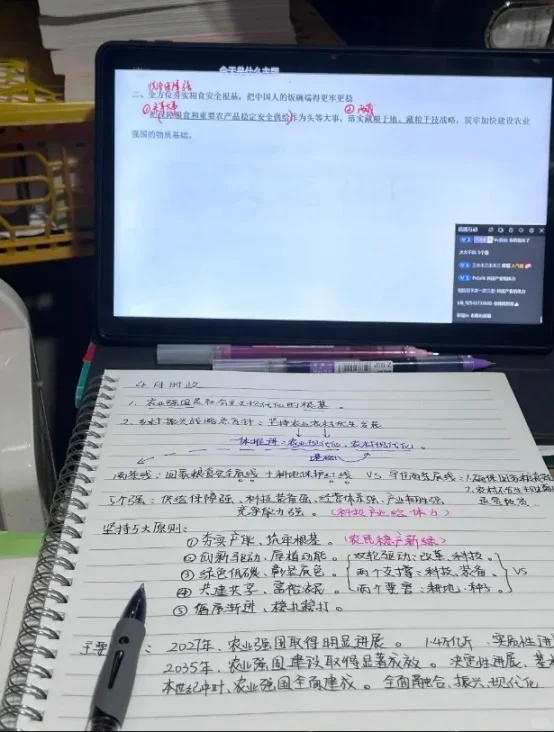 供给保障强
二、全方位夯实粮食安全根基，把中国人的饭碗端得更牢更稳
①头等大事 ②两藏
把保障粮食和重要农产品稳定安全供给作为头等大事，落实藏粮于地、藏粮于技战略，筑牢加快建设农业
强国的物质基础。
4月时政
1. 农业强国是社会主义现代化的根基。
2. 乡村振兴战略总方针：坚持农业农村优先发展
一体推进：农业现代化、农村现代化。
两条线：国家粮食安全底线＋耕地保护红线 VS 守住两条底线：1.确保国家粮食安
5个强：供给保障强、科技装备强、经营体系强、产业韧性强、
竞争能力强。(科技产业经体力)
坚持5大原则：
①夯实产能、筑牢根基。(农民稳产新绿)
②创新驱动、厚植动能。{双轮驱动：改革、科技。
③绿色低碳、彰显底色。 两个支撑：科技、装备。} VS
④共建共享、富裕农民。 两个要害：耕地、种子。
⑤循序渐进、稳扎稳打。
主要 ： 2027年，农业强国取得明显进展。 1.4万亿斤 实质性进
2035年，农业强国建设取得显著成效。决定性进展、基
本世纪中叶，农业强国全面建成。全面融合、振兴、现代化